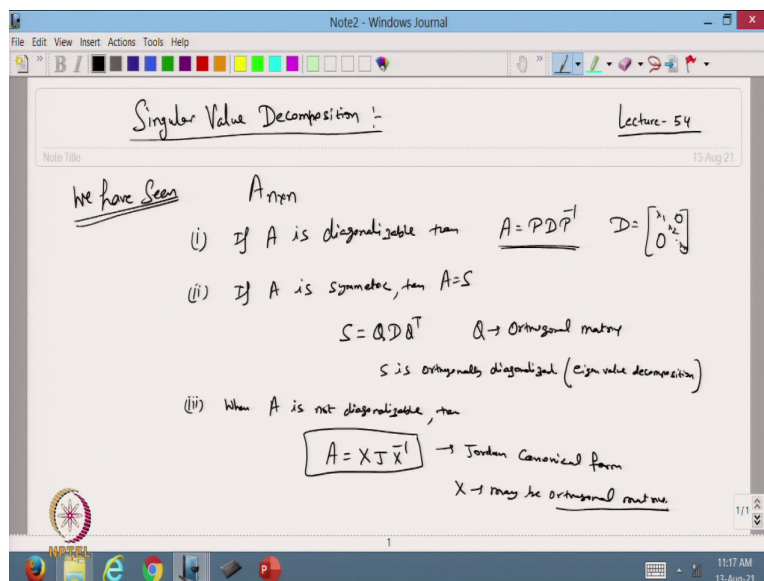 Note2 - Windows Journal
File Edit View Insert Actions Tools Help
B I
Singular Value Decomposition :-
Lecture - 54
Note Title
13-Aug-21
We have Seen
Aₙₓₙ
(i) If A is diagonalizable then A = PDP⁻¹ D = [λ₁ 0 λ₂ 0 ⋱ λₙ]
(ii) If A is symmetric, then A=S
S = QDQᵀ Q → Orthogonal matrix
S is orthogonally diagonalized (eigen value decomposition)
(iii) When A is not diagonalizable, then
A = XJX⁻¹ → Jordan Canonical form
X → may be orthogonal matrix.
1/1
NPTEL
1
11:17 AM
13-Aug-21